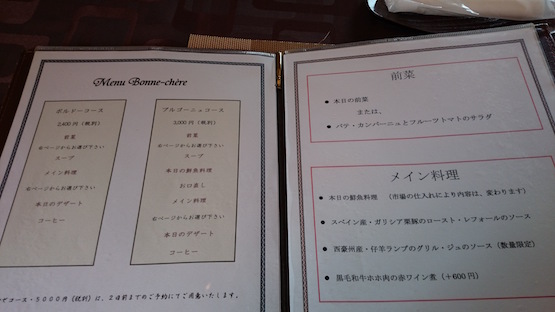 Menu Bonne-chère
ボルドーコース
2,400円（税別）
前菜
右ページからお選び下さい
スープ
メイン料理
右ページからお選び下さい
本日のデザート
コーヒー
ブルゴーニュコース
3,000円（税別）
前菜
右ページからお選び下さい
スープ
本日の鮮魚料理
お口直し
メイン料理
右ページからお選び下さい
本日のデザート
コーヒー
コース・5000円（税別）は、2日前までのご予約にてご用意いたします。
前菜
● 本日の前菜
または、
● パテ・カンパーニュとフルーツトマトのサラダ
メイン料理
● 本日の鮮魚料理 （市場の仕入れにより内容は、変わります）
● スペイン産・ガリシア栗豚のロースト・レフォールのソース
● 西豪州産・仔羊ランプのグリル・ジュのソース（数量限定）
● 黒毛和牛ホホ肉の赤ワイン煮（＋600円）